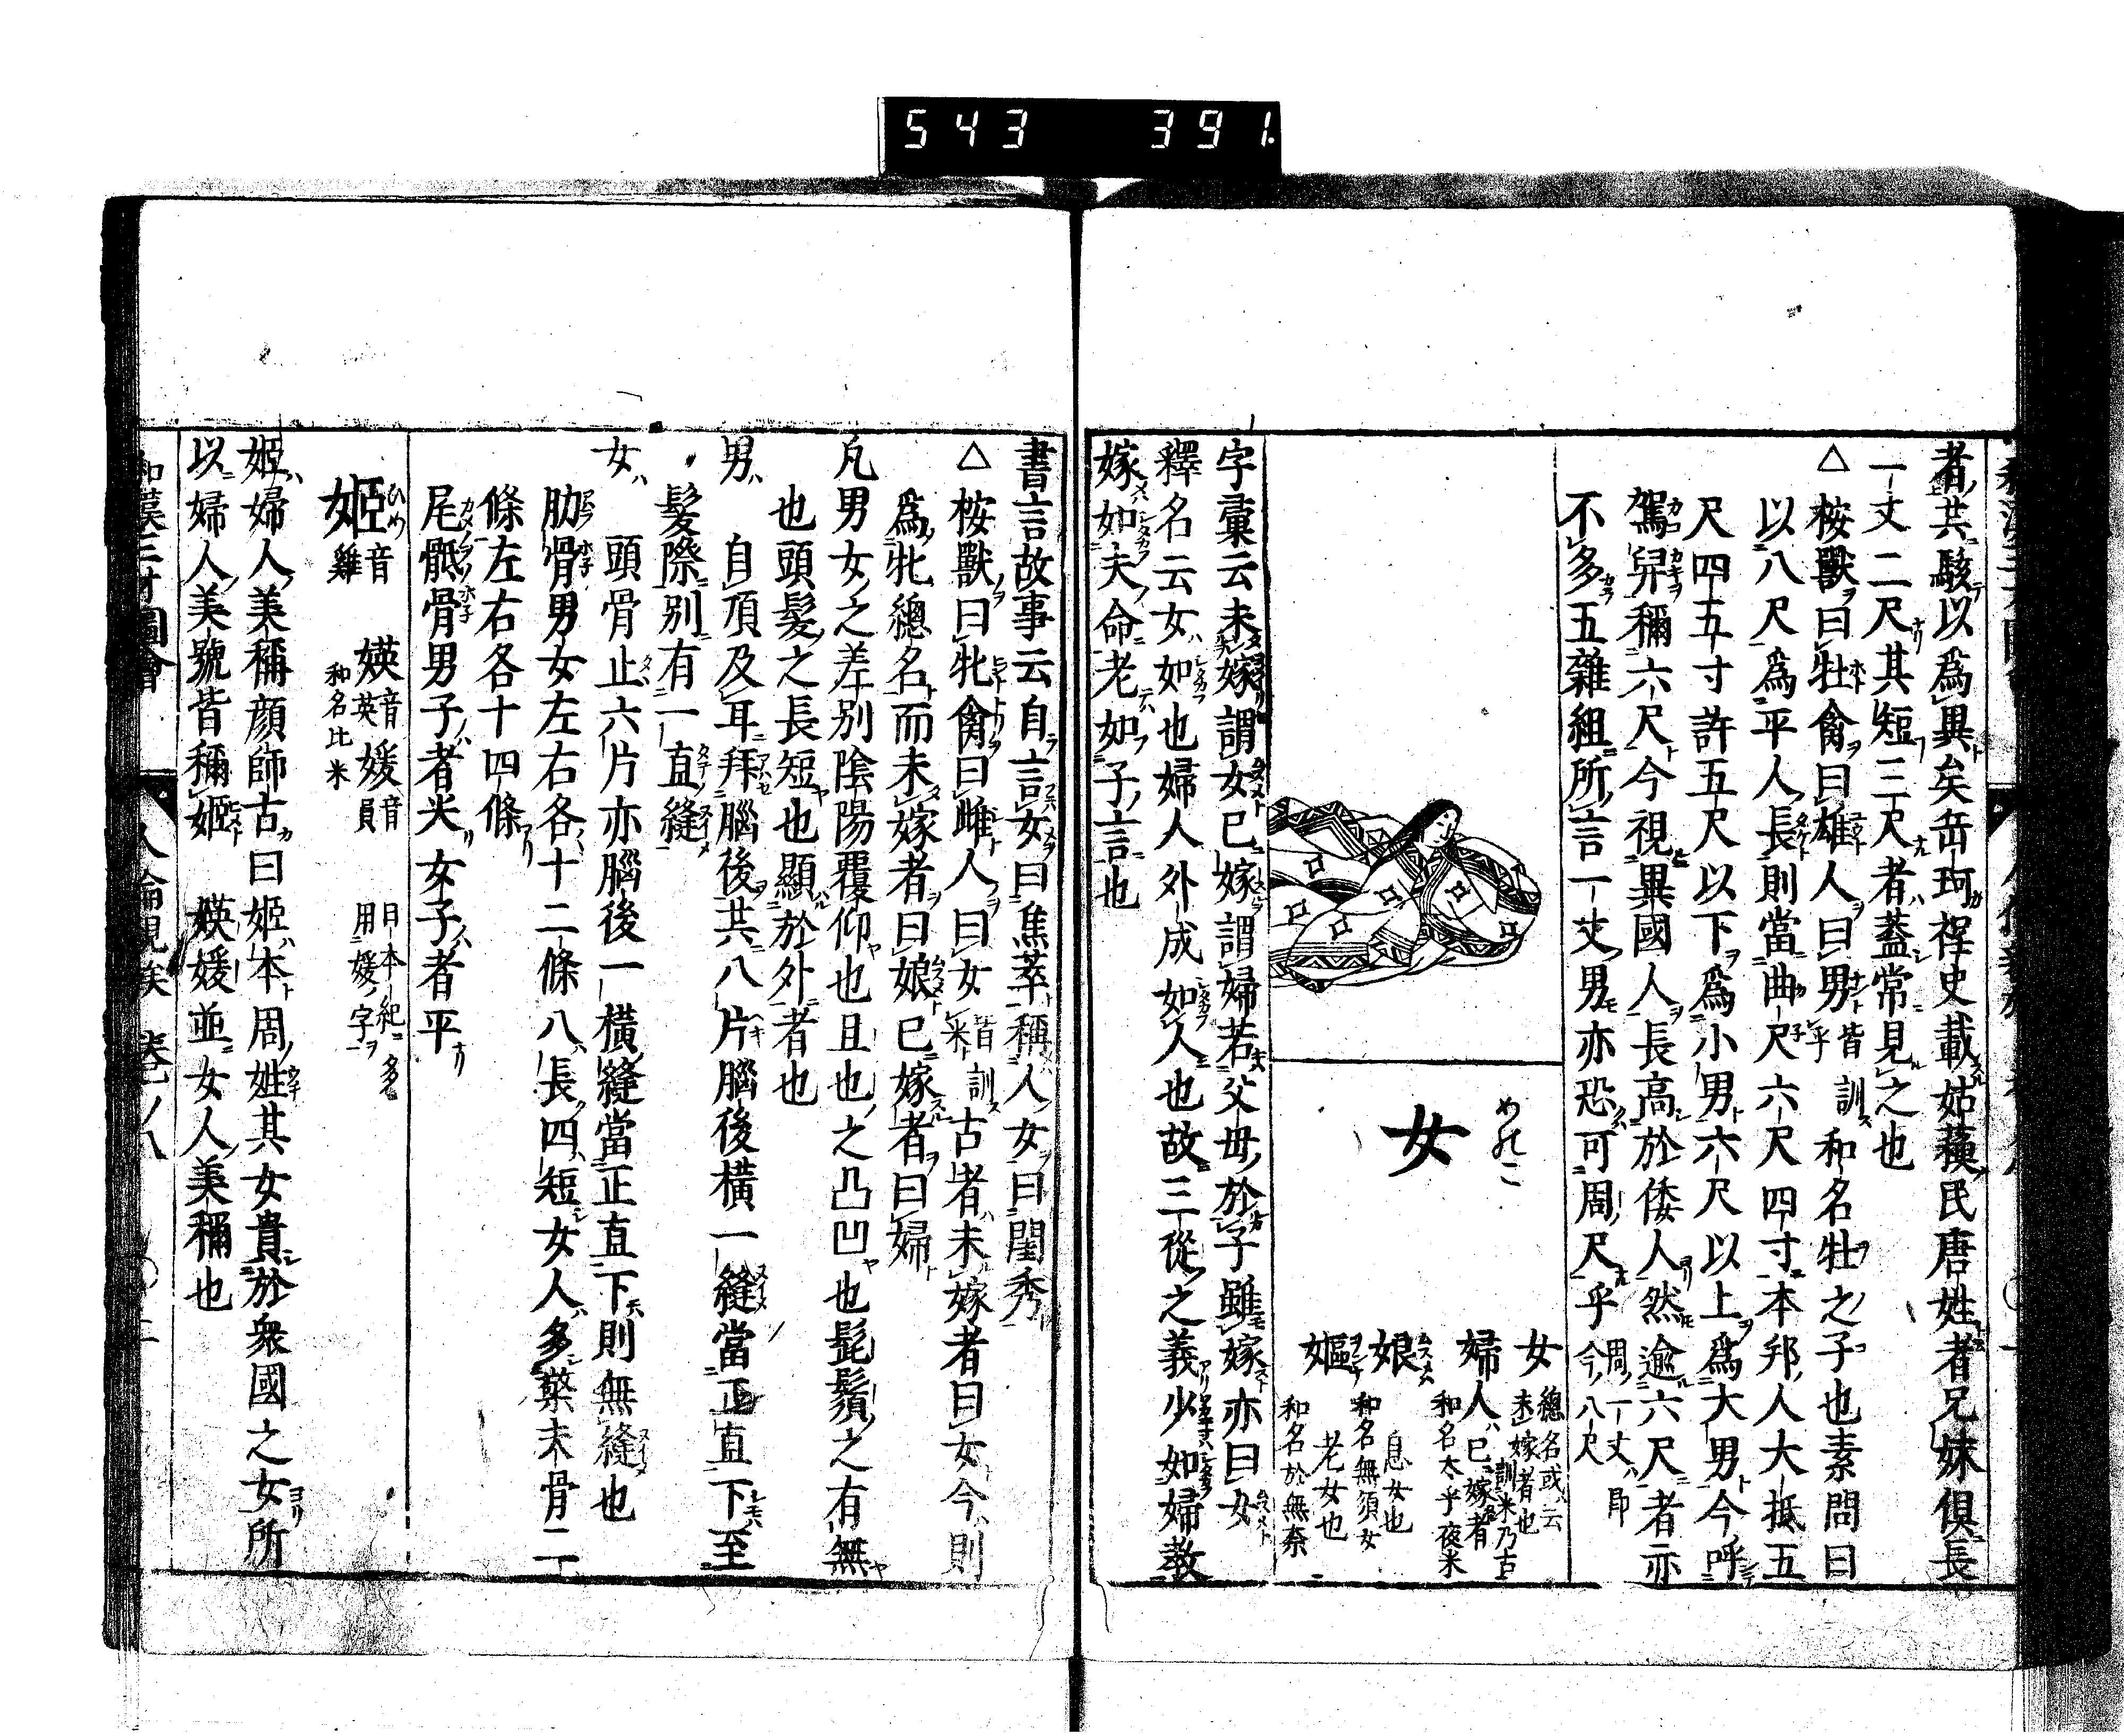 543 391.
者共駭以爲異矣岳珂桯史載姑蘓民唐姓者兄妹俱長
一丈二尺其短三尺者蓋常見之也
△桉獸曰牡禽曰雄人曰男皆訓乎和名牡之子也素問曰
以八尺爲平人長則當曲尺六尺四寸本邦人大抵五
尺四五寸許五尺以下爲小男六尺以上爲大男今呼
駕舁稱六尺今視異國人長高於倭人然逾六尺者亦
不多五雜組所言一丈男亦恐可周尺乎周一丈即今八尺
めのこ
女
女 總名或云未嫁者也訓米乃古
婦人 已嫁者和名太乎夜米
娘 息女也和名無須女
嫗 老女也和名於無奈
字彙云未嫁謂女已嫁謂婦若父母於子雖嫁亦曰女
釋名云女如也婦人外成如人也故三從之義少如婦教
嫁如夫命老如子言也
書言故事云自言女曰蕉萃稱人女曰閨秀
△桉獸曰牝禽曰雌人曰女皆訓米古者未嫁者曰女今則
爲牝總名而未嫁者曰娘已嫁者曰婦
凡男女之差別陰陽覆仰也且也之凸凹也髭鬚之有無
也頭髮之長短也顯於外者也
男 自頂及耳拜腦後共八片腦後横一縫當正直下至
髮際別有一直縫
女 頭骨止六片亦腦後一横縫當正直下則無縫也
肋骨男女左右各十二條八長四短女人多檠末骨二
條左右各十四條
尾骶骨男子者尖女子者平
ひめ
姫 音雞 媖 音英 媛 音員 和名比米 日本紀多用媛字
姫婦人美稱顏師古曰姫本周姓其女貴於衆國之女所
以婦人美號皆稱姫 媖媛並女人美稱也
和漢三才圖會 人倫親族 卷ノ八 〇二